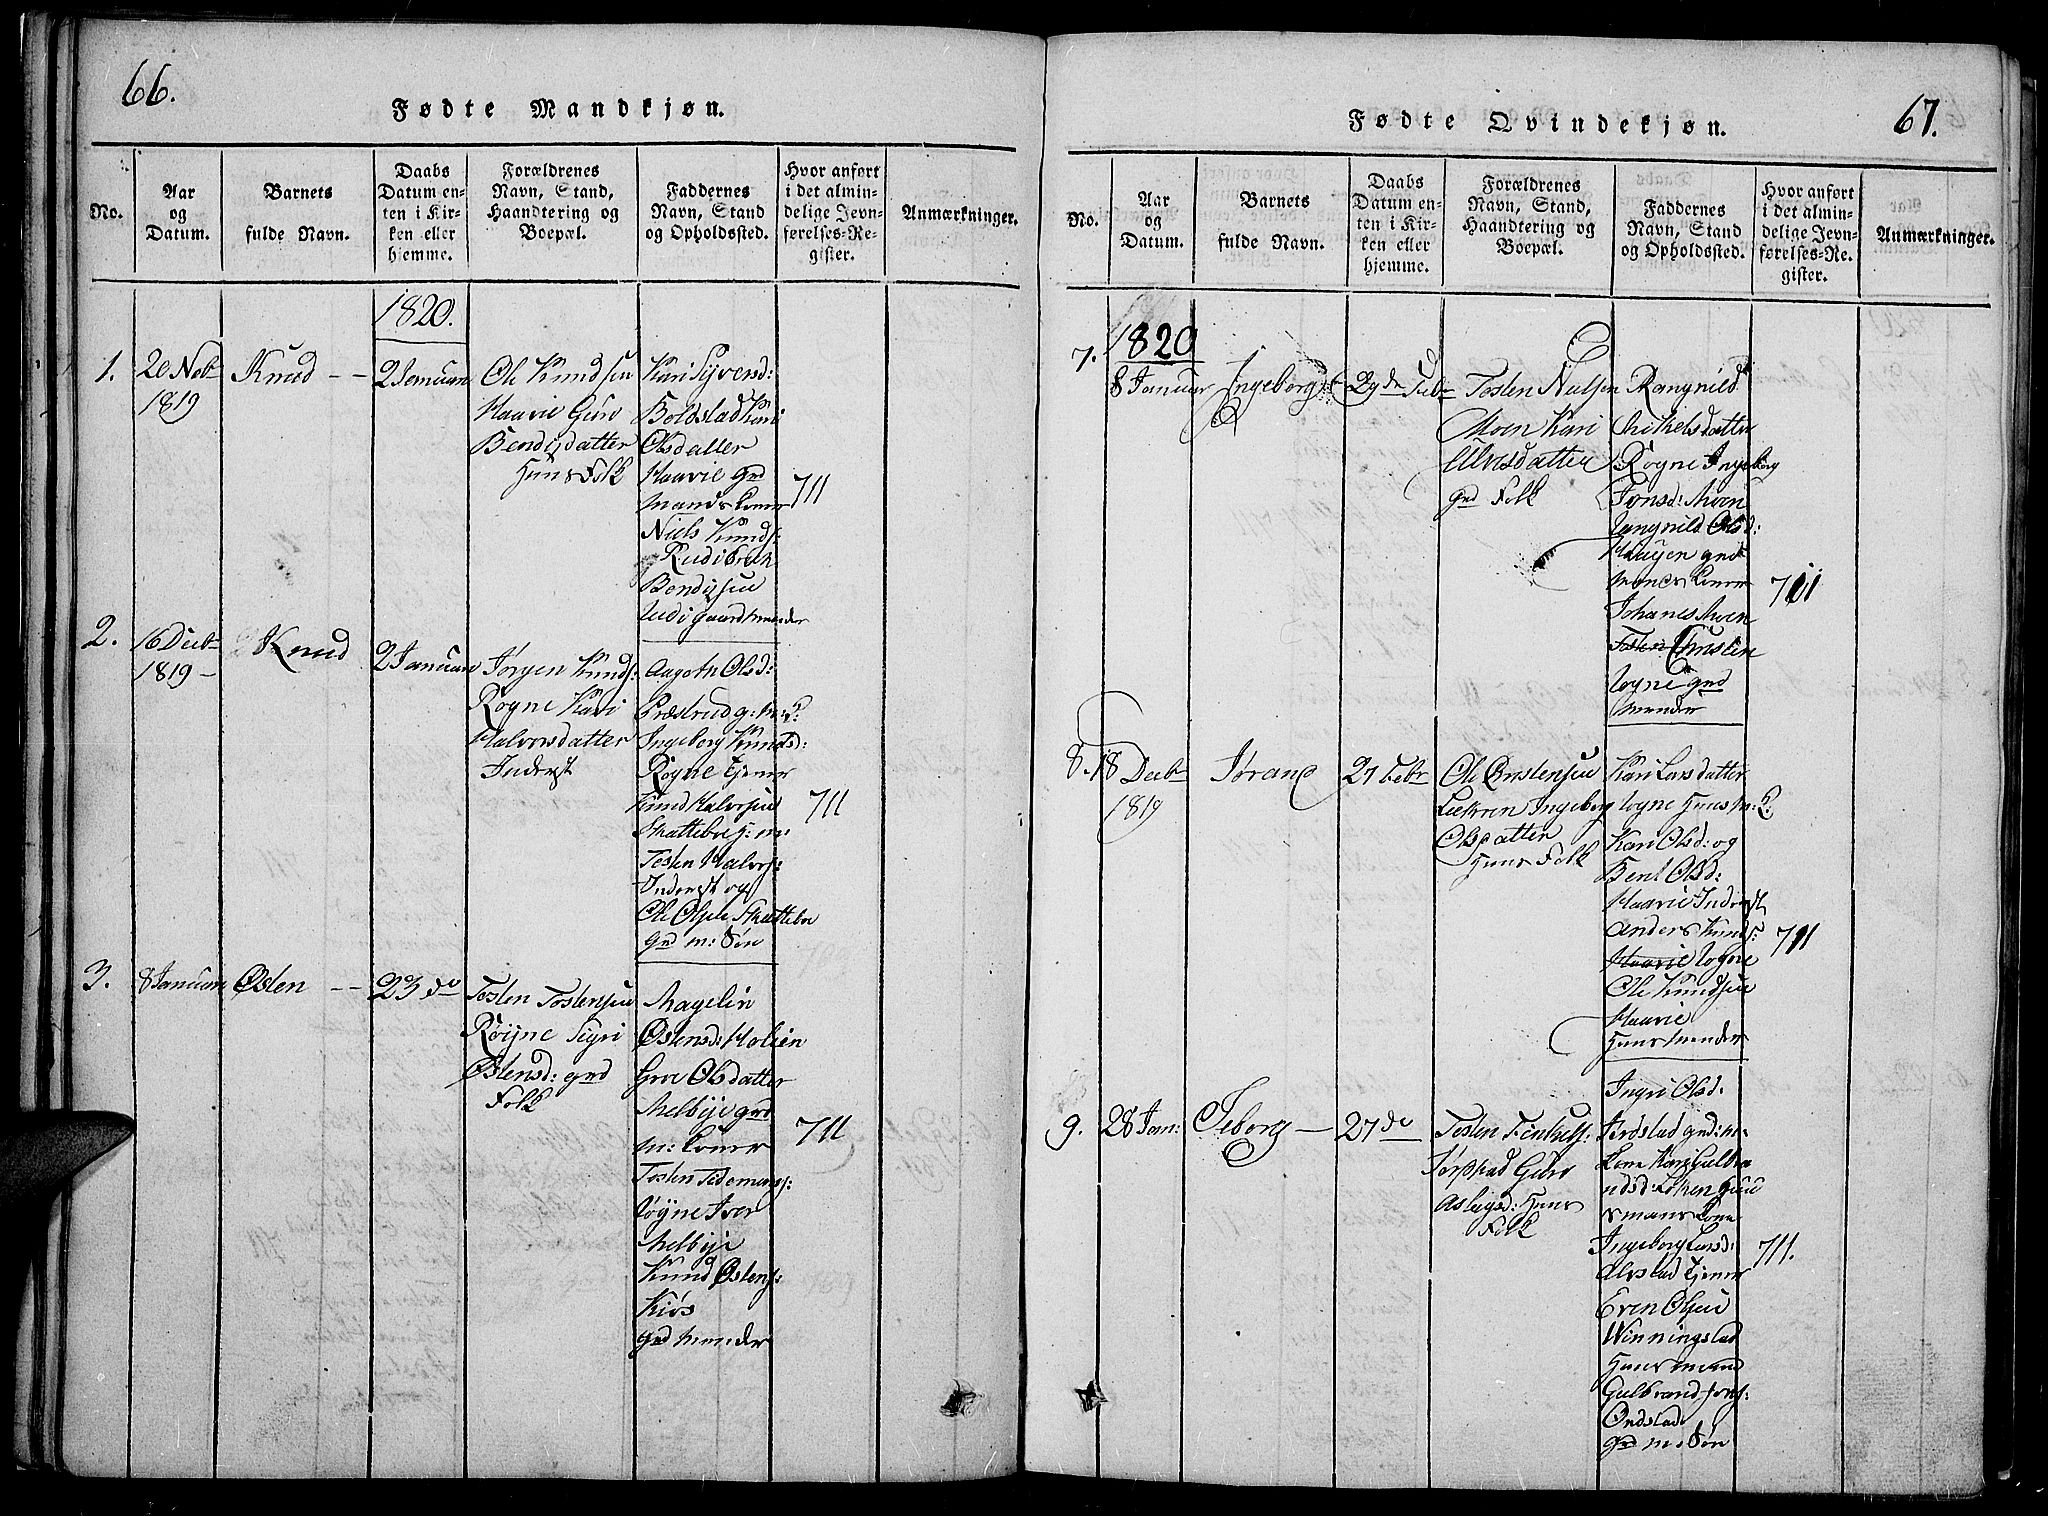 66.
Fødte Mandkjøn.
No.
Aar
og
Datum.
Barnets
fulde Navn.
Daabs
Datum en-
ten i Kir-
ken eller
hjemme.
Forældrenes
Navn, Stand,
Haandtering og
Boepæl.
Faddernes
Navn, Stand
og Opholdssted.
Hvor anført
i det almin-
delige Jevn-
førelses-Re-
gister.
Anmærkninger.
1820.
1.
20 Nob
1819
Knud
2 Januar
Ole Knudsen
Haavie Guro
Bendisdatter
Huus Folk
Kari Syversd:
Boldstad Kari
Olsdatter
Haavie grd
mands Koner
Niels Knuds:
Rudi
Bendissen
Rudi gaardmænder
711
2.
16 Decb
1819
Knud
2 Januar
Jørgen Knuds:
Rogne Kari
Halvorsdatter
Inderst
Aagoth Olsd:
Præstrud g: m: K:
Ingeborg Knudsd:
Rogne tjener
Knud Halvorsen
Skattebve H: m:
Tosten Halvors:
Inderst og
Ole Olsen Skattebve
grd m: Søn
711
3.
8 Januar
Østen
23 do
Tosten Tostensen
Røijne Sigri
Østensd: grd
Folk
Magelin
Østensd: Holien
Groe Olsdatter
Melbye grd
m: Koner
Tosten Tidemans:
Røyne Iver
Melbye
Knud Østens:
Kiøs
grd mænder
711
67.
Fødte Qvindekjøn.
No.
Aar
og
Datum.
Barnets
fulde Navn.
Daabs
Datum en-
ten i Kir-
ken eller
hjemme.
Forældrenes
Navn, Stand,
Haandtering og
Boepæl.
Faddernes
Navn, Stand
og Opholdssted.
Hvor anført
i det almin-
delige Jevn-
førelses-Re-
gister.
Anmærkninger.
1820
7.
8 Januar
Ingeborg
Tosten Nielsen
Moen Kari
Ulvesdatter
grd Folk
Rangnild
Mikelsdatter
Rogne Ingeborg
Jonsd: Moen
Rangnild Olsd:
Haugen grd
mands Koner
Johanes Moen
Tosten Christen
Rogne grd
mænder
711
8.
18 Decb
1819
Jørand
27 Febr
Ole Østensen
Løkren Ingeborg
Olsdatter
Huus Folk
Kari Larsdatter
Rogne Huus m: K:
Kari Olsd: og
Berit Olsd:
Haavie Inderst
Anders Knuds:
Haavie Rogne
Ole Knudsen
Haavie
Huus Mænder
711
9.
28 Jan:
Seborg
27 do
Tosten Tinkels:
Jørstad Guro
Aslegsd: Huus
Folk
Ingri Olsd:
Jørstad grd: m:
Kone Kari Gulbra
ndsd: Løken Huu
smans Kone
Ingeborg Larsd:
Alvstad tjener
Even Olsen
Winningstad
Huus mand
Gulbrand Jons:
Ondstad
grd m: Søn
711.